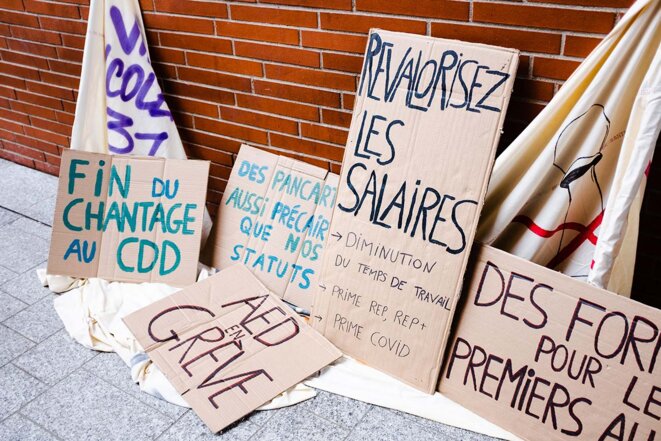 VI
COLL
31
FiN DU
CHANTAGE
AU CDD
DES PANCAR
AUSSI PRÉCAIR
QUE NOS
STATUTS
AED
EN
GRÈVE
REVALORISEZ
LES
SALAIRES
→ DIMINUTION
DU TEMPS DE TRAVAIL
→ PRIME REP, REP+
→ PRIME COVID
DES FORM
POUR LE
PREMIERS AU